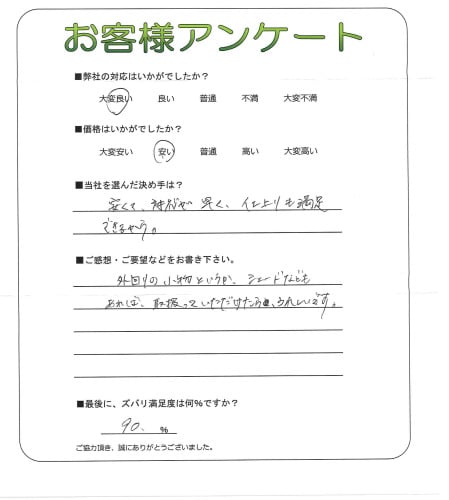 お客様アンケート
■弊社の対応はいかがでしたか?
大変良い 良い 普通 不満 大変不満
■価格はいかがでしたか?
大変安い 安い 普通 高い 大変高い
■当社を選んだ決め手は?
安くて、対応が早く、仕上りも満足
できるから。
■ご感想・ご要望などをお書き下さい。
外回りの小物というか、シェードなども
あれば、取扱っていただけたら、うれしいです。
■最後に、ズバリ満足度は何%ですか?
90. %
ご協力頂き、誠にありがとうございました。